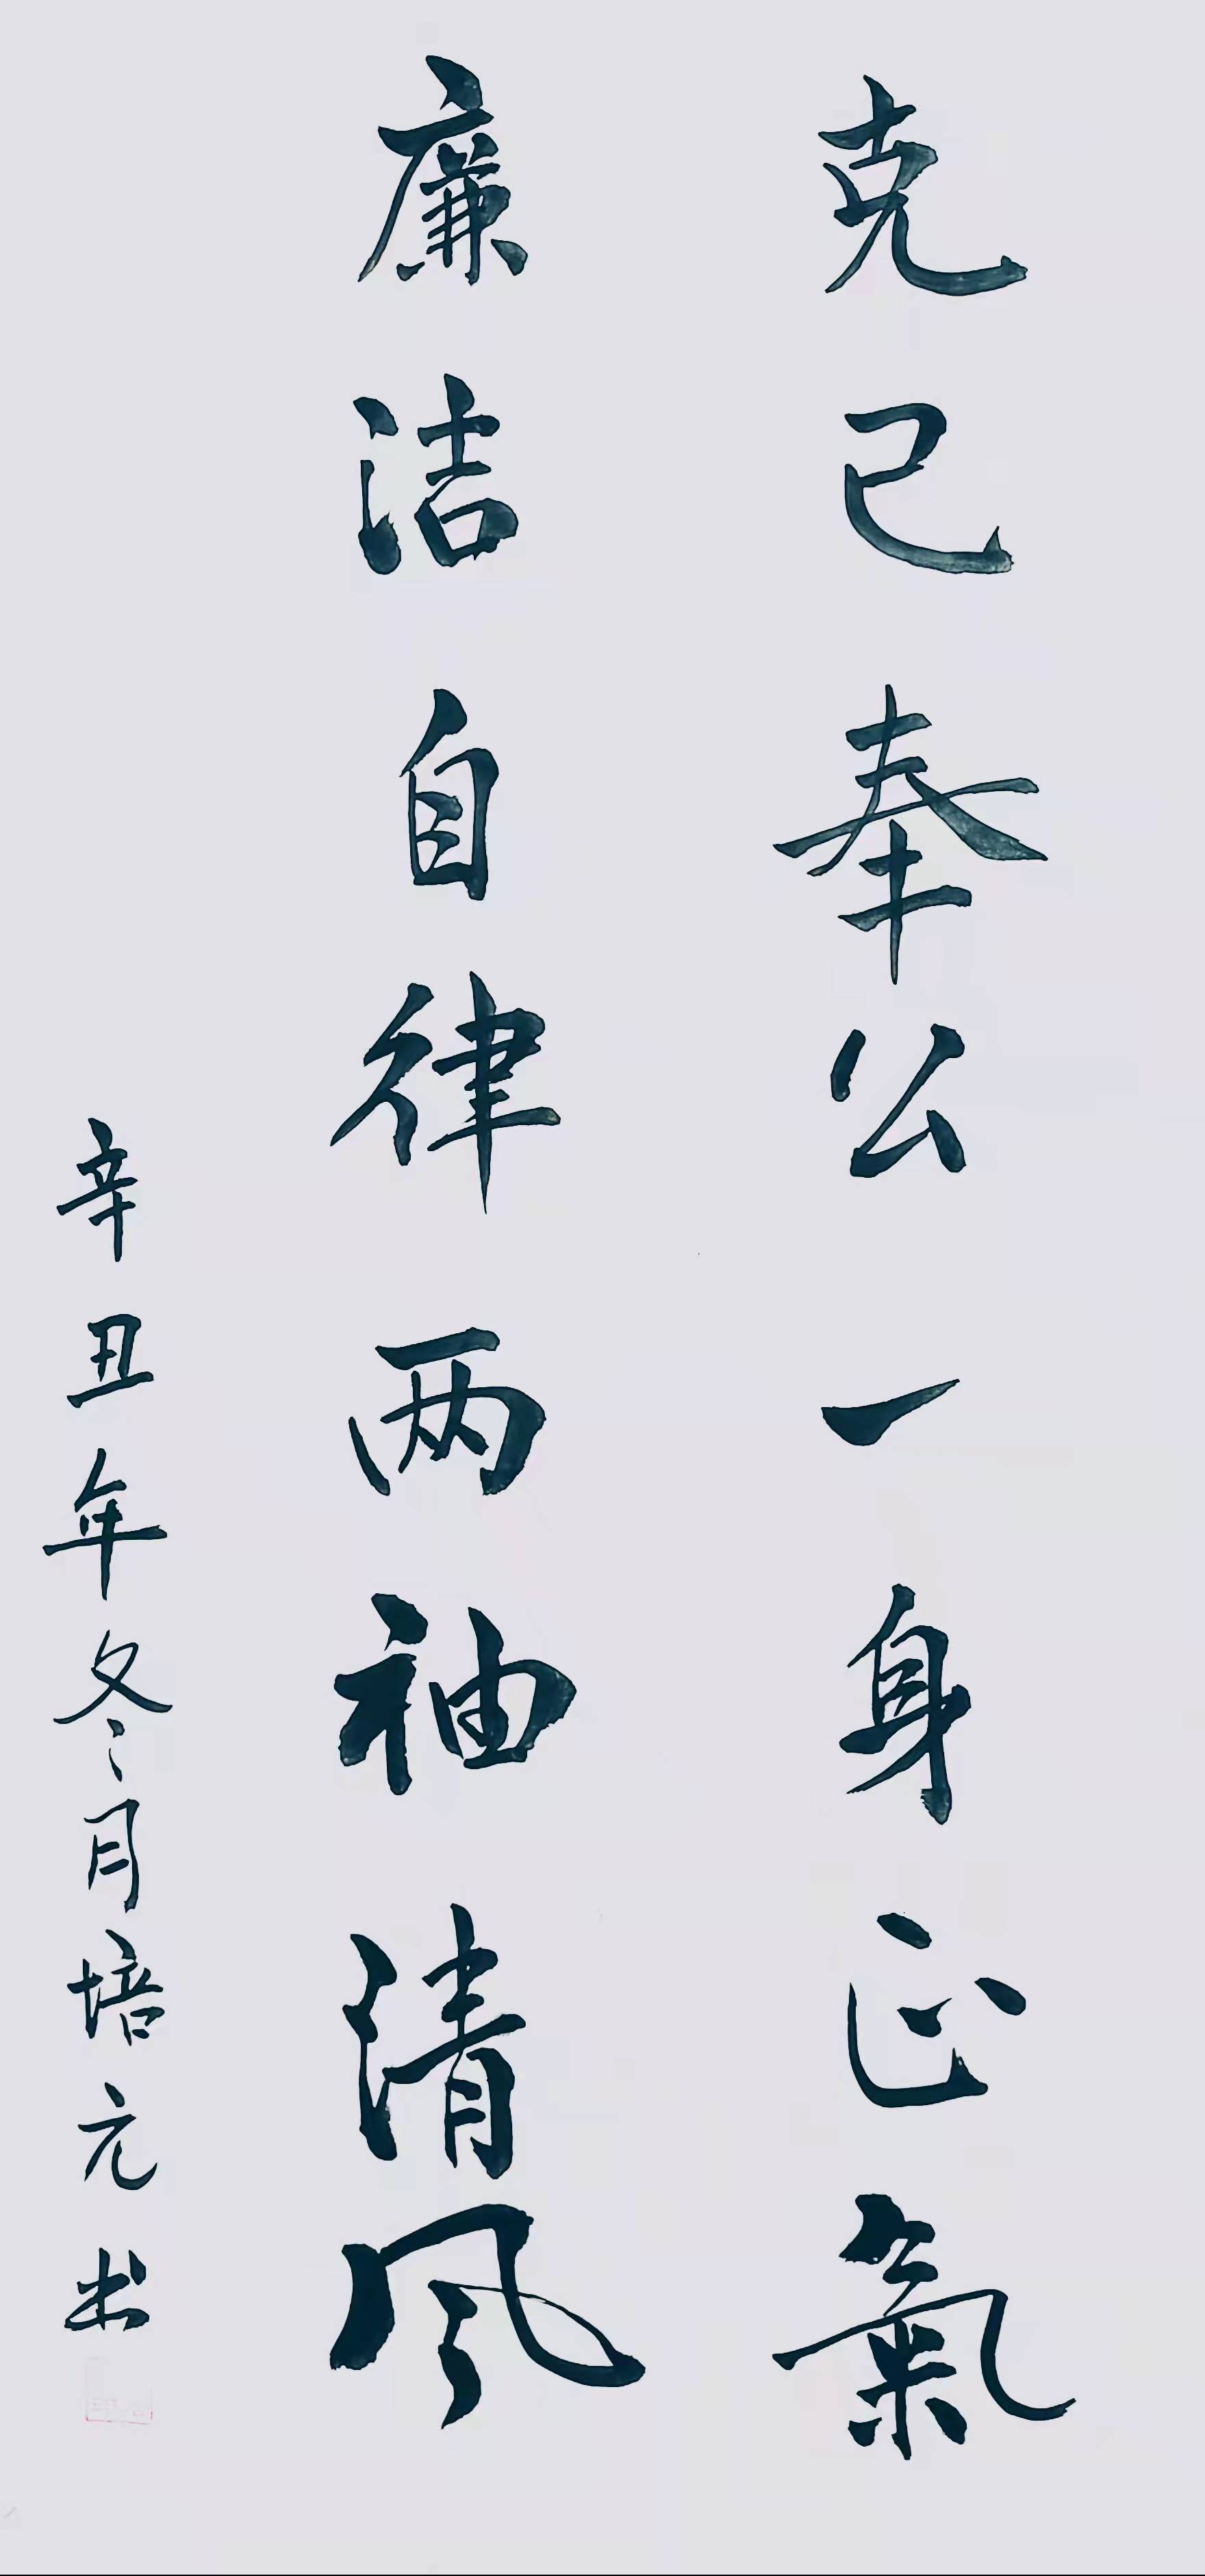 克己奉公一身正氣
廉洁自律两袖清风
辛丑年冬月培元书